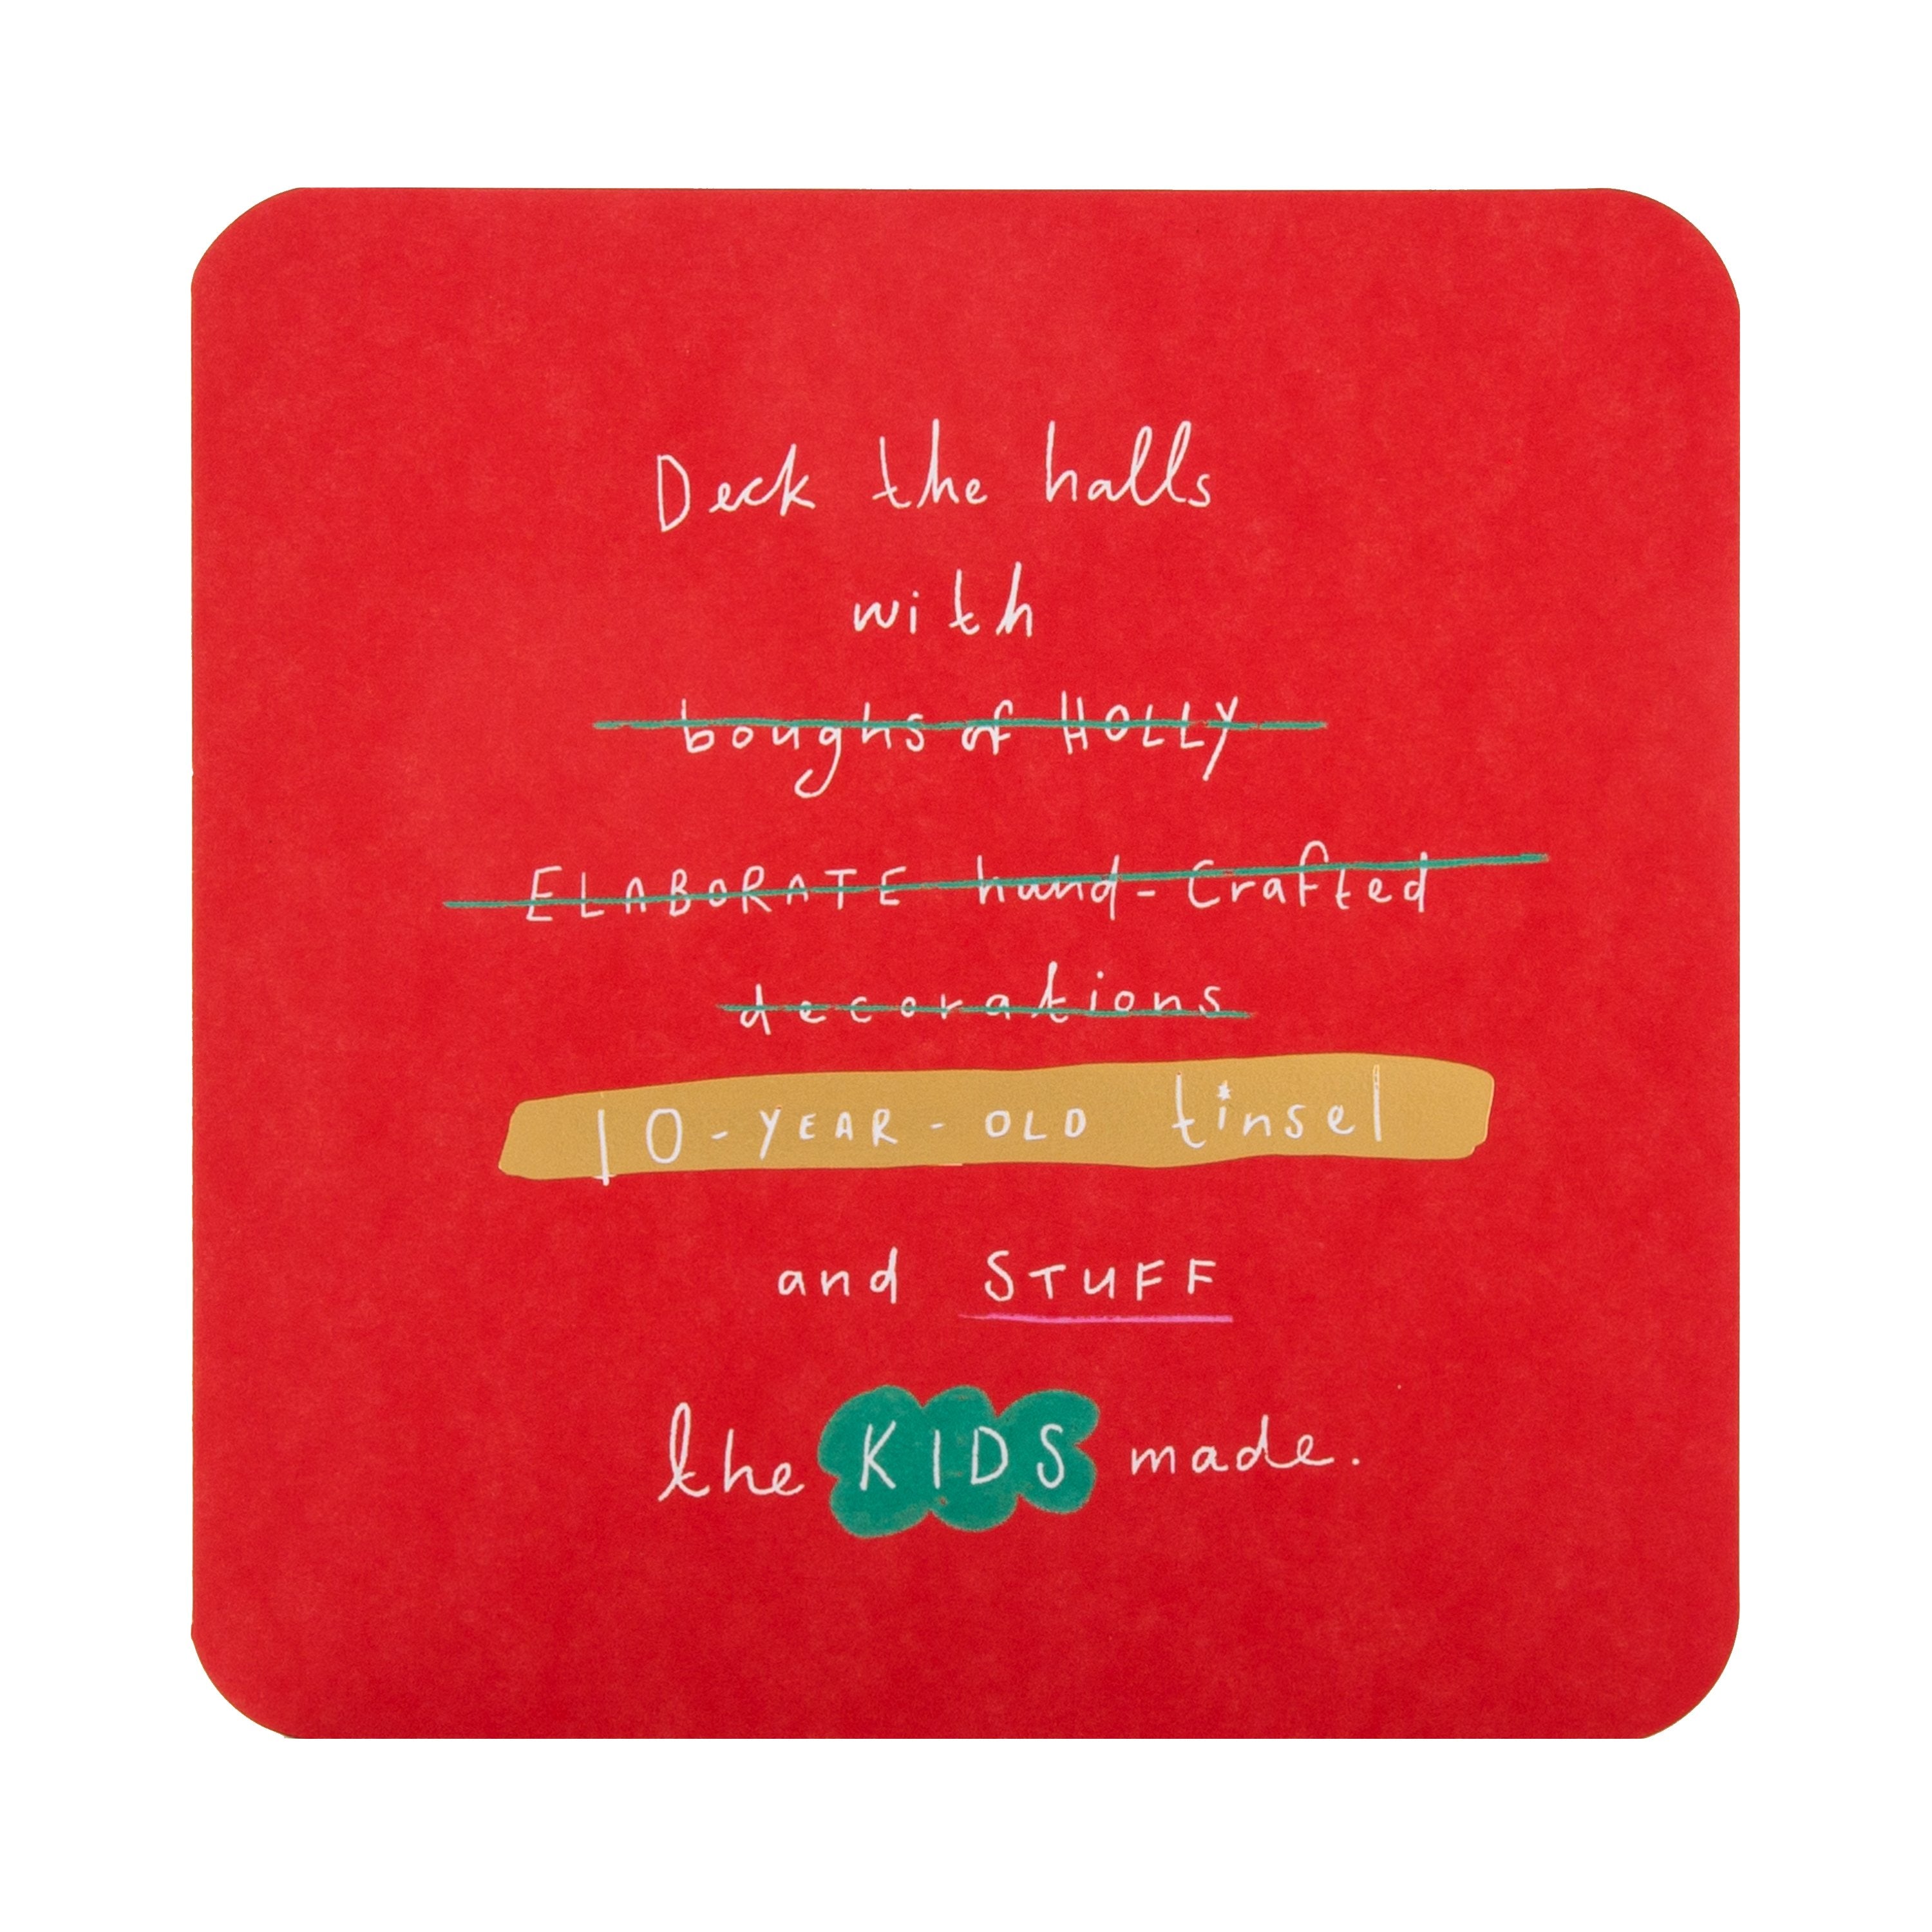 Deck the halls
with
boughs of HOLLY
ELABORATE hand-crafted
decorations
10-YEAR-OLD tinsel
and STUFF
the KIDS made.